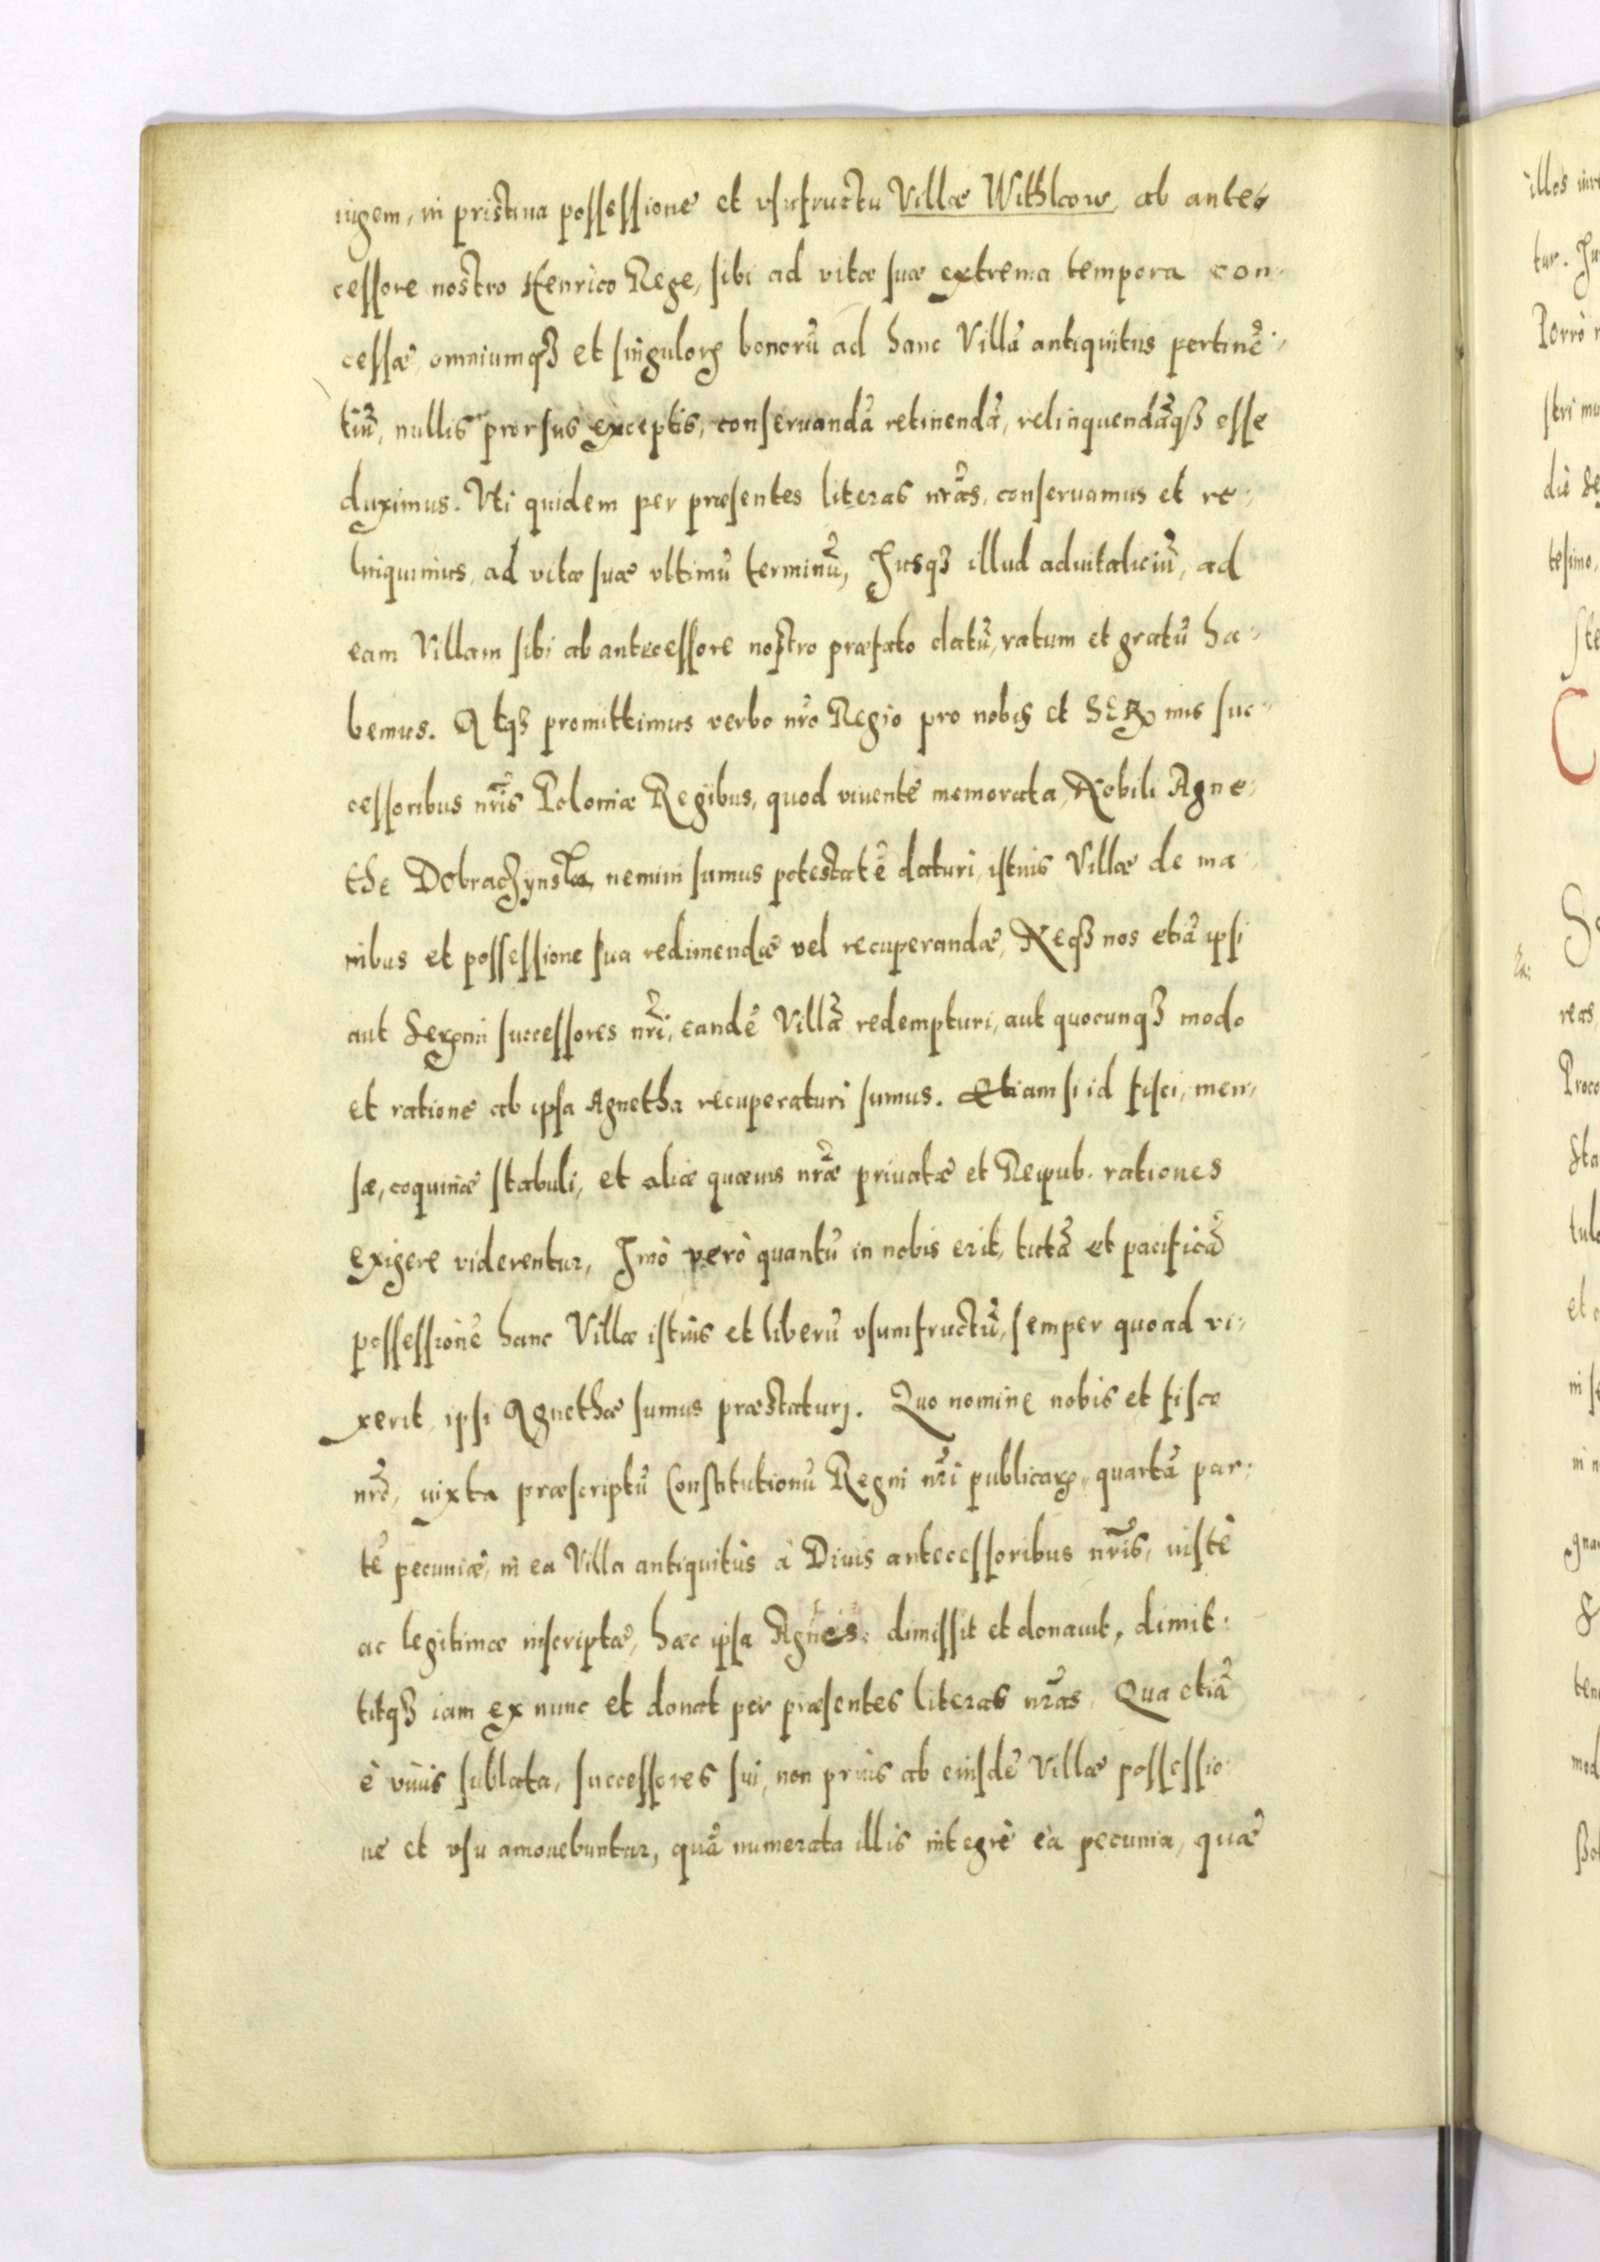 iugem, in pristina possessione et vsufructu Villæ Withkow, ab ante-
cessore nostro Henrico Rege, sibi ad vitæ suæ extrema tempora con-
cessæ, omniumqȝ et singuloꝝ bonorũ ad hanc Villã antiquitus pertinẽ-
tiũ, nullis prorsus exceptis, conseruandã retinendã, relinquendãqȝ esse
duximus. Vti quidem per præsentes literas nr̃as, conseruamus et re-
linquimus, ad vitæ suæ vltimũ terminũ, Jusqȝ illud aduitaliciũ, ad
eam Villam sibi ab antecessore nostro præfato datũ, ratum et gratũ ha-
bemus. Atqȝ promittimus verbo nr̃o Regio pro nobis et SERmis suc-
cessoribus nr̃is Poloniæ Regibus, quod viuente memorata, Nobili Agne-
the Dobraczynska, nemini sumus potestatẽ daturi, istius Villæ de ma-
nibus et possessione sua redimendæ vel recuperandæ, Neqȝ nos etiã ipsi
aut Sermi successores nr̃i, eandẽ Villã redempturi, aut quocunqȝ modo
et ratione ab ipsa Agnetha recuperaturi sumus. Etiam si id fisci, men-
sæ, coquinæ stabuli, et aliæ quæuis nr̃æ priuatæ et Reipub. rationes
exigere viderentur, Imò verò quantũ in nobis erit, tutã et pacificã
possessionẽ hanc Villæ istius et liberũ vsumfructũ, semper quoad vi-
xerit, ipsi Agnethæ sumus præstaturj. Quo nomine nobis et fisco
nr̃o, iuxta præscriptũ Constitutionũ Regni nr̃i publicaꝝ, quartã par-
tẽ pecuniæ, in ea Villa antiquitùs à Diuis antecessoribus nr̃is, iustè
ac legitimæ inscriptæ, hæc ipsa Agnes dimissit et donauit, dimit-
titqȝ iam ex nunc et donat per præsentes literas nr̃as. Qua etiã
è viuis sublata, successores sui, non priùs ab eiusdẽ Villæ possessio-
ne et vsu amouebuntur, quã numerata illis integrè ea pecunia, quæ